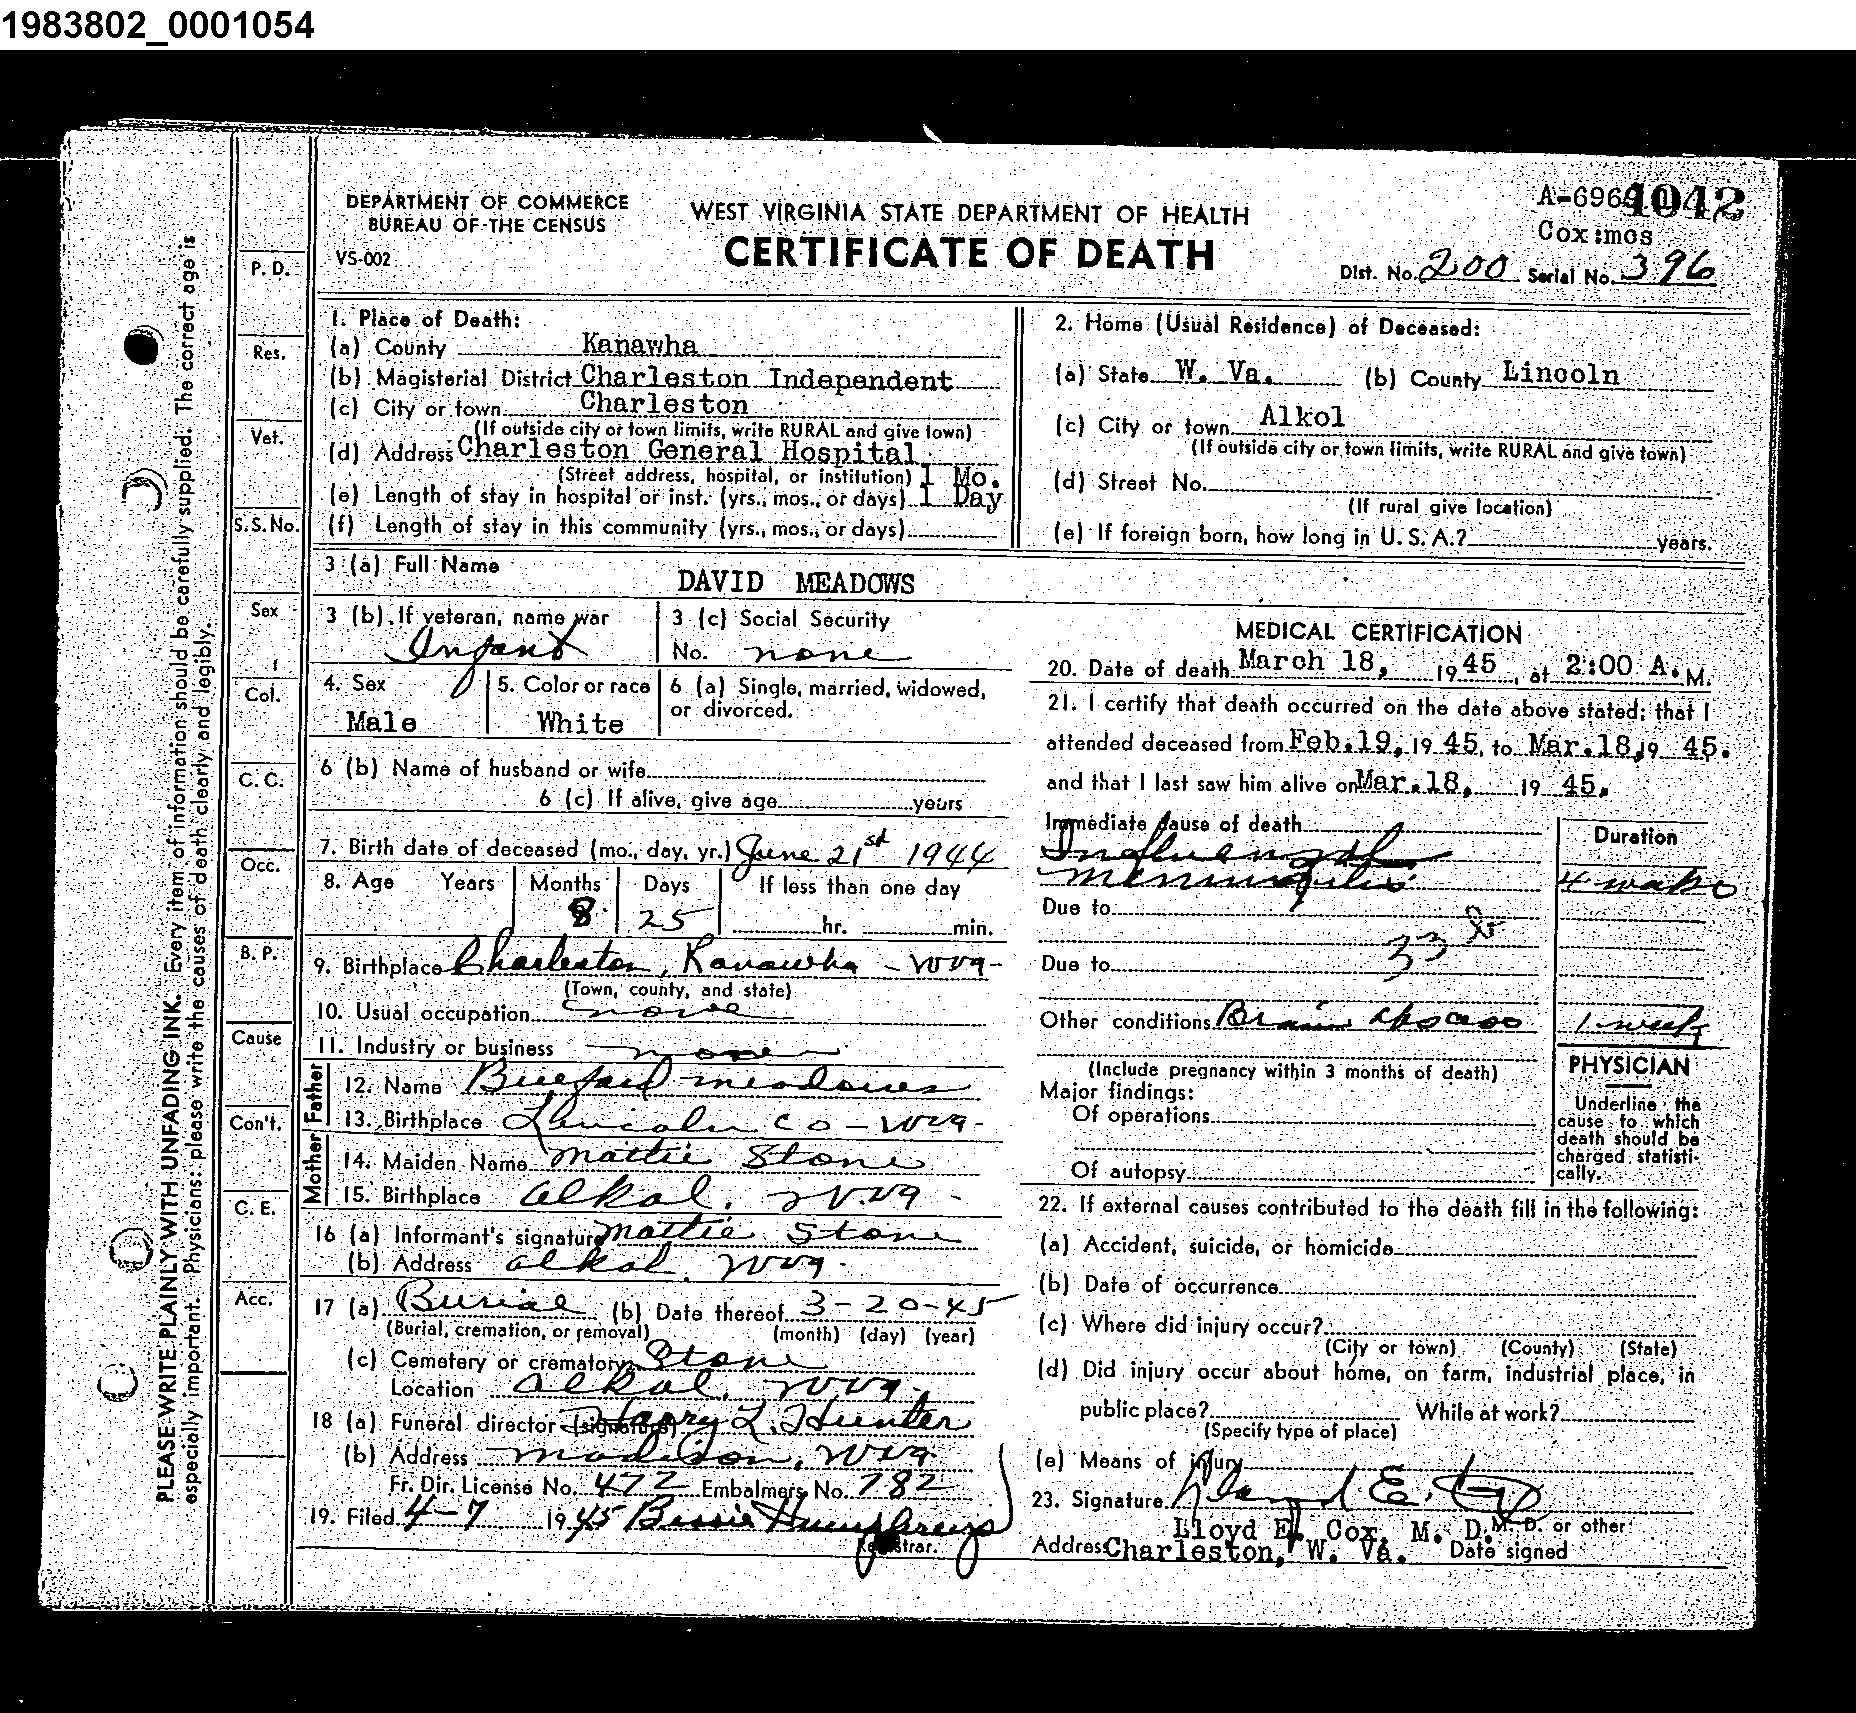 1983802_0001054
DEPARTMENT OF COMMERCE
BUREAU OF THE CENSUS
VS-002
WEST VIRGINIA STATE DEPARTMENT OF HEALTH
CERTIFICATE OF DEATH
4042
Cox:mos
Dist. No. 200 Serial No. 396
PLEASE WRITE PLAINLY WITH UNFADING INK. Every item of information should be carefully supplied. The correct age is
especially important. Physicians: please write the causes of death clearly and legibly.
P. D.
Res.
Vet.
S.S. No.
Sex
Col.
C. C.
Occ.
B. P.
Cause
Con't.
C. E.
Acc.
1. Place of Death:
(a) County Kanawha
(b) Magisterial District Charleston Independent
(c) City or town Charleston
(If outside city or town limits, write RURAL and give town)
(d) Address Charleston General Hospital
(Street address, hospital, or institution) 1 Mo.
(e) Length of stay in hospital or inst. (yrs., mos., or days) 1 Day
(f) Length of stay in this community (yrs., mos., or days)
2. Home (Usual Residence) of Deceased:
(a) State W. Va. (b) County Lincoln
(c) City or town Alkol
(If outside city or town limits, write RURAL and give town)
(d) Street No.
(If rural give location)
(e) If foreign born, how long in U. S. A.? years.
3 (a) Full Name DAVID MEADOWS
3 (b) If veteran, name war Infant
3 (c) Social Security
No. none
4. Sex Male
5. Color or race White
6 (a) Single, married, widowed,
or divorced.
6 (b) Name of husband or wife
6 (c) If alive, give age years
7. Birth date of deceased (mo., day, yr.) June 21st 1944
8. Age Years Months Days If less than one day
8 25 hr. min.
9. Birthplace Charleston, Kanawha - W Va -
(Town, county, and state)
10. Usual occupation none
11. Industry or business none
Father
12. Name Bueford meadows
13. Birthplace Lincoln Co - W Va -
Mother
14. Maiden Name Mattie Stone
15. Birthplace Alkol, W. Va -
16 (a) Informant's signature Mattie Stone
(b) Address Alkol, W Va.
17 (a) Burial (b) Date thereof 3-20-45
(Burial, cremation, or removal) (month) (day) (year)
(c) Cemetery or crematory Stone
Location Alkol, W Va.
18 (a) Funeral director (signature) Harry L. Hunter
(b) Address Madison, W Va
Fr. Dir. License No. 472 Embalmers No. 782
19. Filed 4-7 1945 Bessie Humphreys
Registrar.
MEDICAL CERTIFICATION
20. Date of death March 18, 1945, at 2:00 A.M.
21. I certify that death occurred on the date above stated; that I
attended deceased from Feb.19, 1945, to Mar.18, 1945.
and that I last saw him alive on Mar.18, 1945.
Immediate cause of death
Duration
Influenzal
meningitis 4 weeks
Due to
33
Due to
Other conditions Brain abscess 1 week
(Include pregnancy within 3 months of death)
Major findings:
Of operations
Of autopsy
PHYSICIAN
Underline the
cause to which
death should be
charged statisti-
cally.
22. If external causes contributed to the death fill in the following:
(a) Accident, suicide, or homicide
(b) Date of occurrence
(c) Where did injury occur?
(City or town) (County) (State)
(d) Did injury occur about home, on farm, industrial place, in
public place? While at work?
(Specify type of place)
(e) Means of injury
23. Signature Lloyd E. Cox
Lloyd E. Cox, M. D. M. D. or other
Address Charleston, W. Va. Date signed